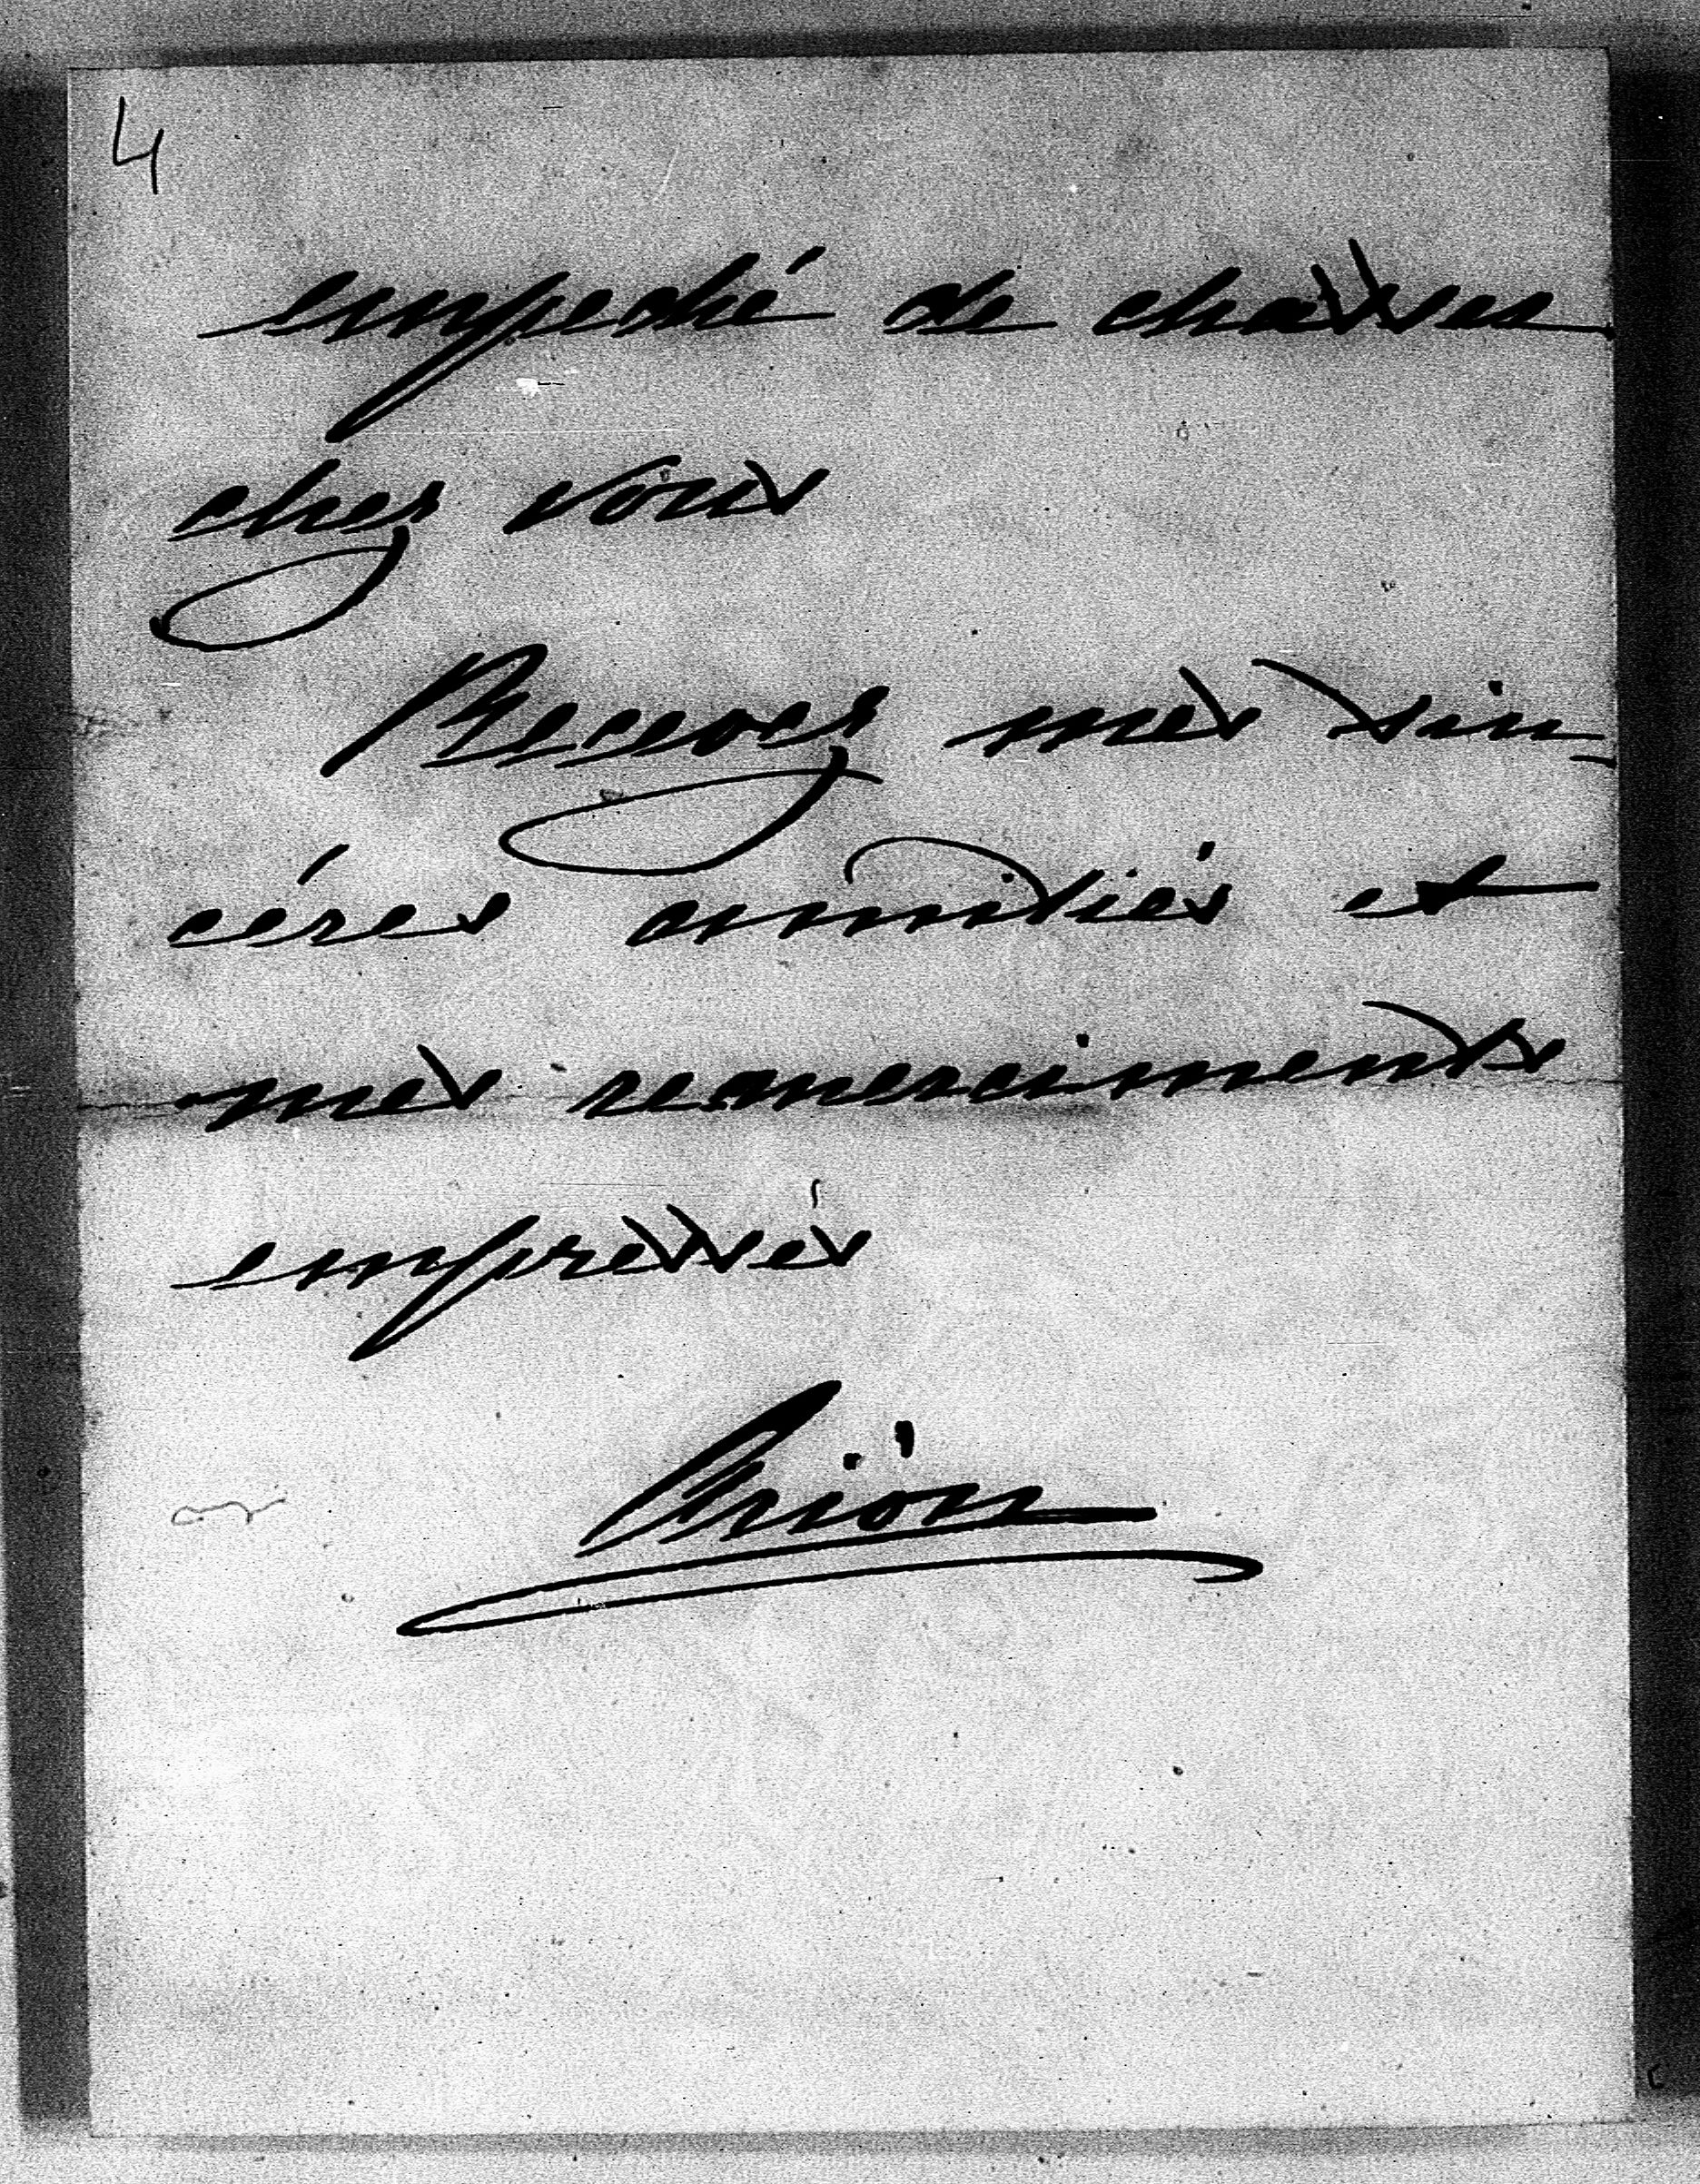 4
empeché de chasser
chez vous
Recevez mes sin-
céres amitiés et
mes remerciments
empressés
Arión